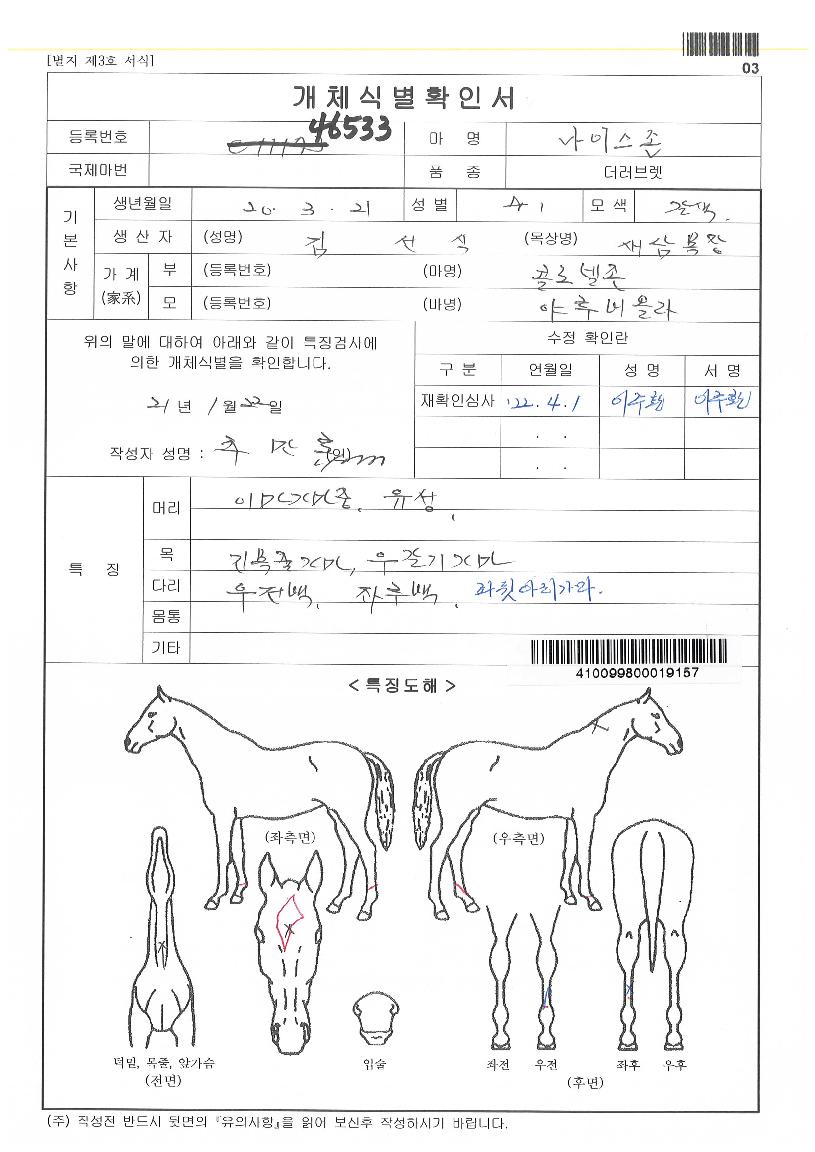 [별지 제3호 서식]
03
개체식별확인서
등록번호 46533 마 명 나이스존
국제마번 품 종 더러브렛
기본사항
생년월일 20. 3. 21 성별 수 모색 갈색.
생산자 (성명) 김 선 식 (목상명) 새삼목장
가계 (家系) 부 (등록번호) (마명) 콜로넬존
모 (등록번호) (마명) 야후비욜라
위의 말에 대하여 아래와 같이 특징검사에
의한 개체식별을 확인합니다.
21년 1월 22일
작성자 성명 : (인)
수정 확인란
구분 연월일 성명 서명
재확인심사 '22. 4. 1 이주환 이주환
. .
. .
특 징
머리 유성.
목
다리 우전백, 좌후백.
몸통
기타
410099800019157
< 특징도해 >
(좌측면) (우측면)
턱밑, 목줄, 앞가슴 입술 좌전 우전 좌후 우후
(전면) (후면)
(주) 작성전 반드시 뒷면의 『유의사항』을 읽어 보신후 작성하시기 바랍니다.